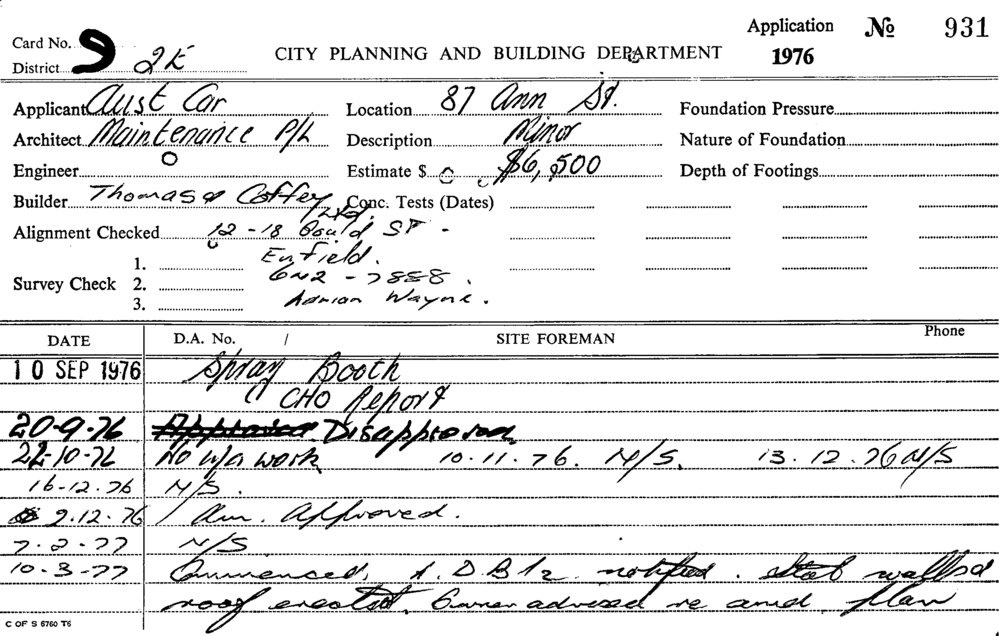 Application No 931
Card No. 9
District 2E
CITY PLANNING AND BUILDING DEPARTMENT
1976
Applicant Aust Car
Location 87 Ann St.
Foundation Pressure
Architect Maintenance P/L
Description Minor
Nature of Foundation
Engineer
Estimate $ $6,500
Depth of Footings
Builder Thomas & Coffey Ltd.
Conc. Tests (Dates)
Alignment Checked 12-18 Gould St -
Enfield.
Survey Check 1. 2. 3.
642-7888.
Adrian Wayne.
DATE D.A. No. / SITE FOREMAN Phone
10 SEP 1976 Spray Booth
CHO Report
20-9-76 Approved Disapproved
22-10-76 No work 10.11.76. N/S. 13.12.76 N/S
16-12.76 N/S.
9.12.76 Am. Approved.
7-2-77 N/S
10-3-77 Commenced, notified. walls
roof erected. Owner advised re amd. plan
C OF S 6760 T6